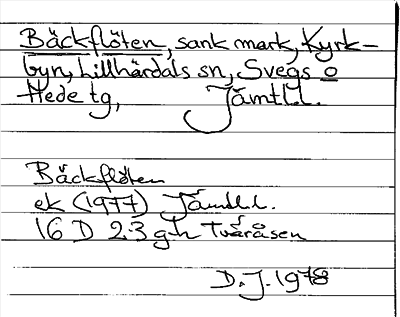 Bäckflöten, sank mark, Kyrk-
byn, Lillhärdals sn, Svegs o
Hede tg, Jämtl.l.
Bäckflöten
ek (1977) Jämtl.l.
16 D 2-3 g-h Tvåråsen
D.J. 1978